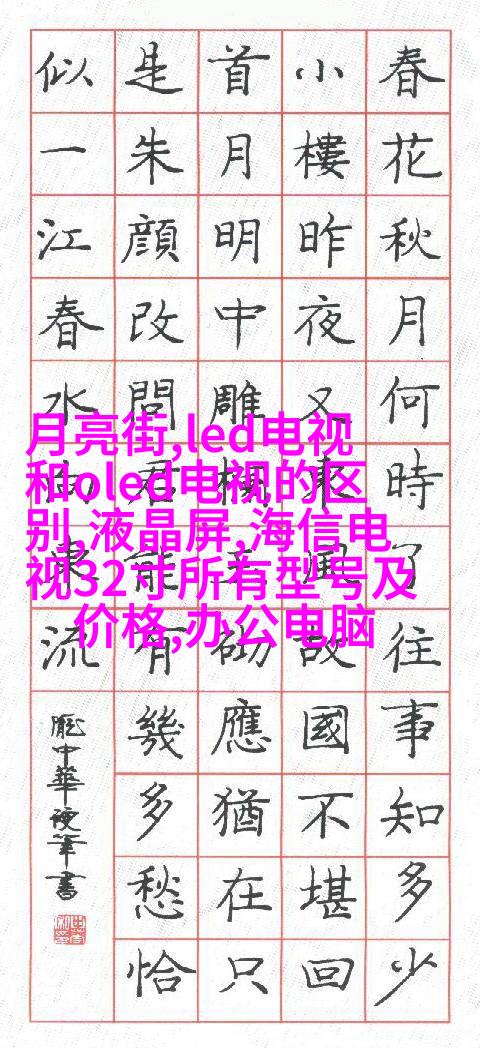 春花秋月何時了往事知多少
小樓昨夜又東風故國不堪回
首月明中雕欄玉砌應猶在只
是朱顔改問君能有幾多愁恰
似一江春水向東流
龐中華硬筆書
月亮街,led电视
和oled电视的区
别,液晶屏,海信电
视32寸所有型号及
价格,办公电脑